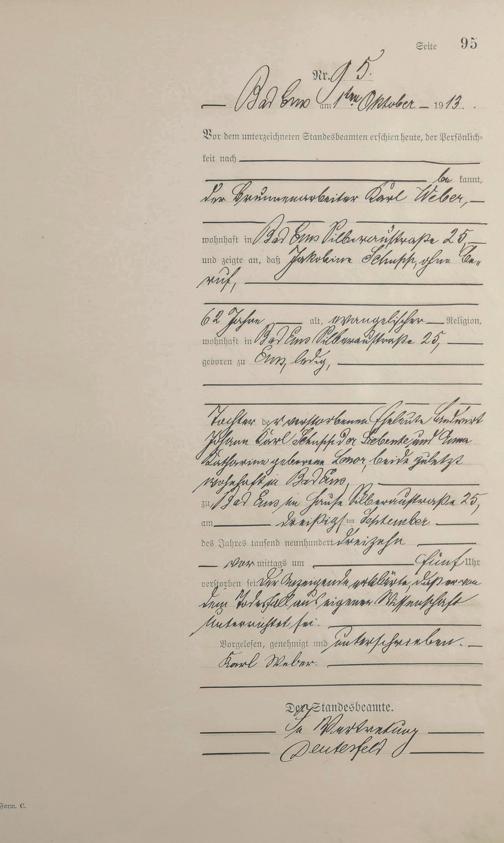 Seite 95
Nr. 95.
Bad Ems am 1ten Oktober 1913.
Vor dem unterzeichneten Standesbeamten erschien heute, der Persönlich-
keit nach
be kannt,
der Brunnenarbeiter Karl Weber,
wohnhaft in Bad Ems Silberaustraße 25,
und zeigte an, daß Jakobine ohne Be-
ruf,
62 Jahre alt, evangelischer Religion,
wohnhaft in Bad Ems Silberaustraße 25,
geboren zu Ems, ledig,
Tochter der verstorbenen Eheleute Landwirt
Johann Karl der Siebente und Anna
Katharine geborene beide zuletzt
wohnhaft in Bad Ems,
zu Bad Ems im Hause Silberaustraße 25,
am dreißigsten September
des Jahres tausend neunhundert dreizehn
vor mittags um fünf Uhr
verstorben sei. Der Anzeigende erklärte, daß er von
dem Todesfall aus eigener Wissenschaft
unterrichtet sei.
Vorgelesen, genehmigt und unterschrieben.
Karl Weber.
Der Standesbeamte.
In Vertretung
Form. C.